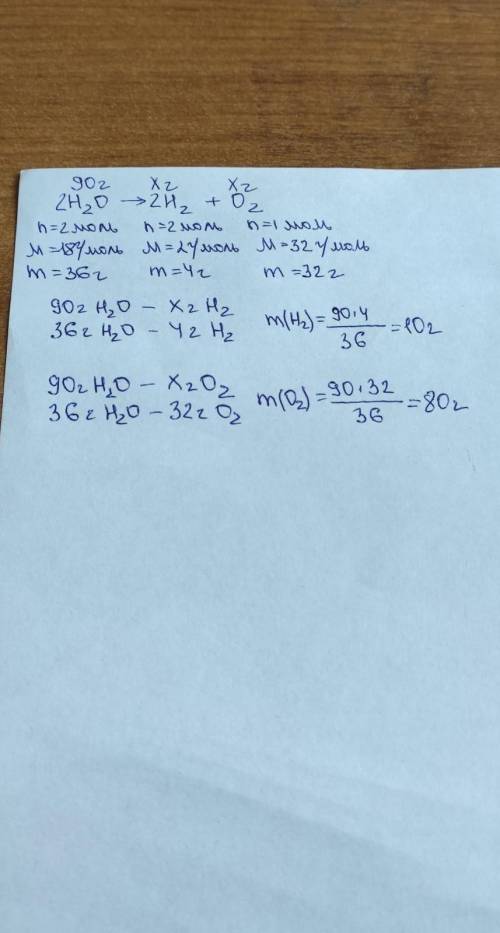 90г хг хг
2H₂O → 2H₂ + O₂
n=2моль n=2моль n=1моль
M=18г/моль M=2г/моль M=32г/моль
m=36г m=4г m=32г
90г H₂O – хг H₂
36г H₂O – 4г H₂
m(H₂)= 90·4/36 =10г
90г H₂O – хг O₂
36г H₂O – 32г O₂
m(O₂)= 90·32/36 =80г